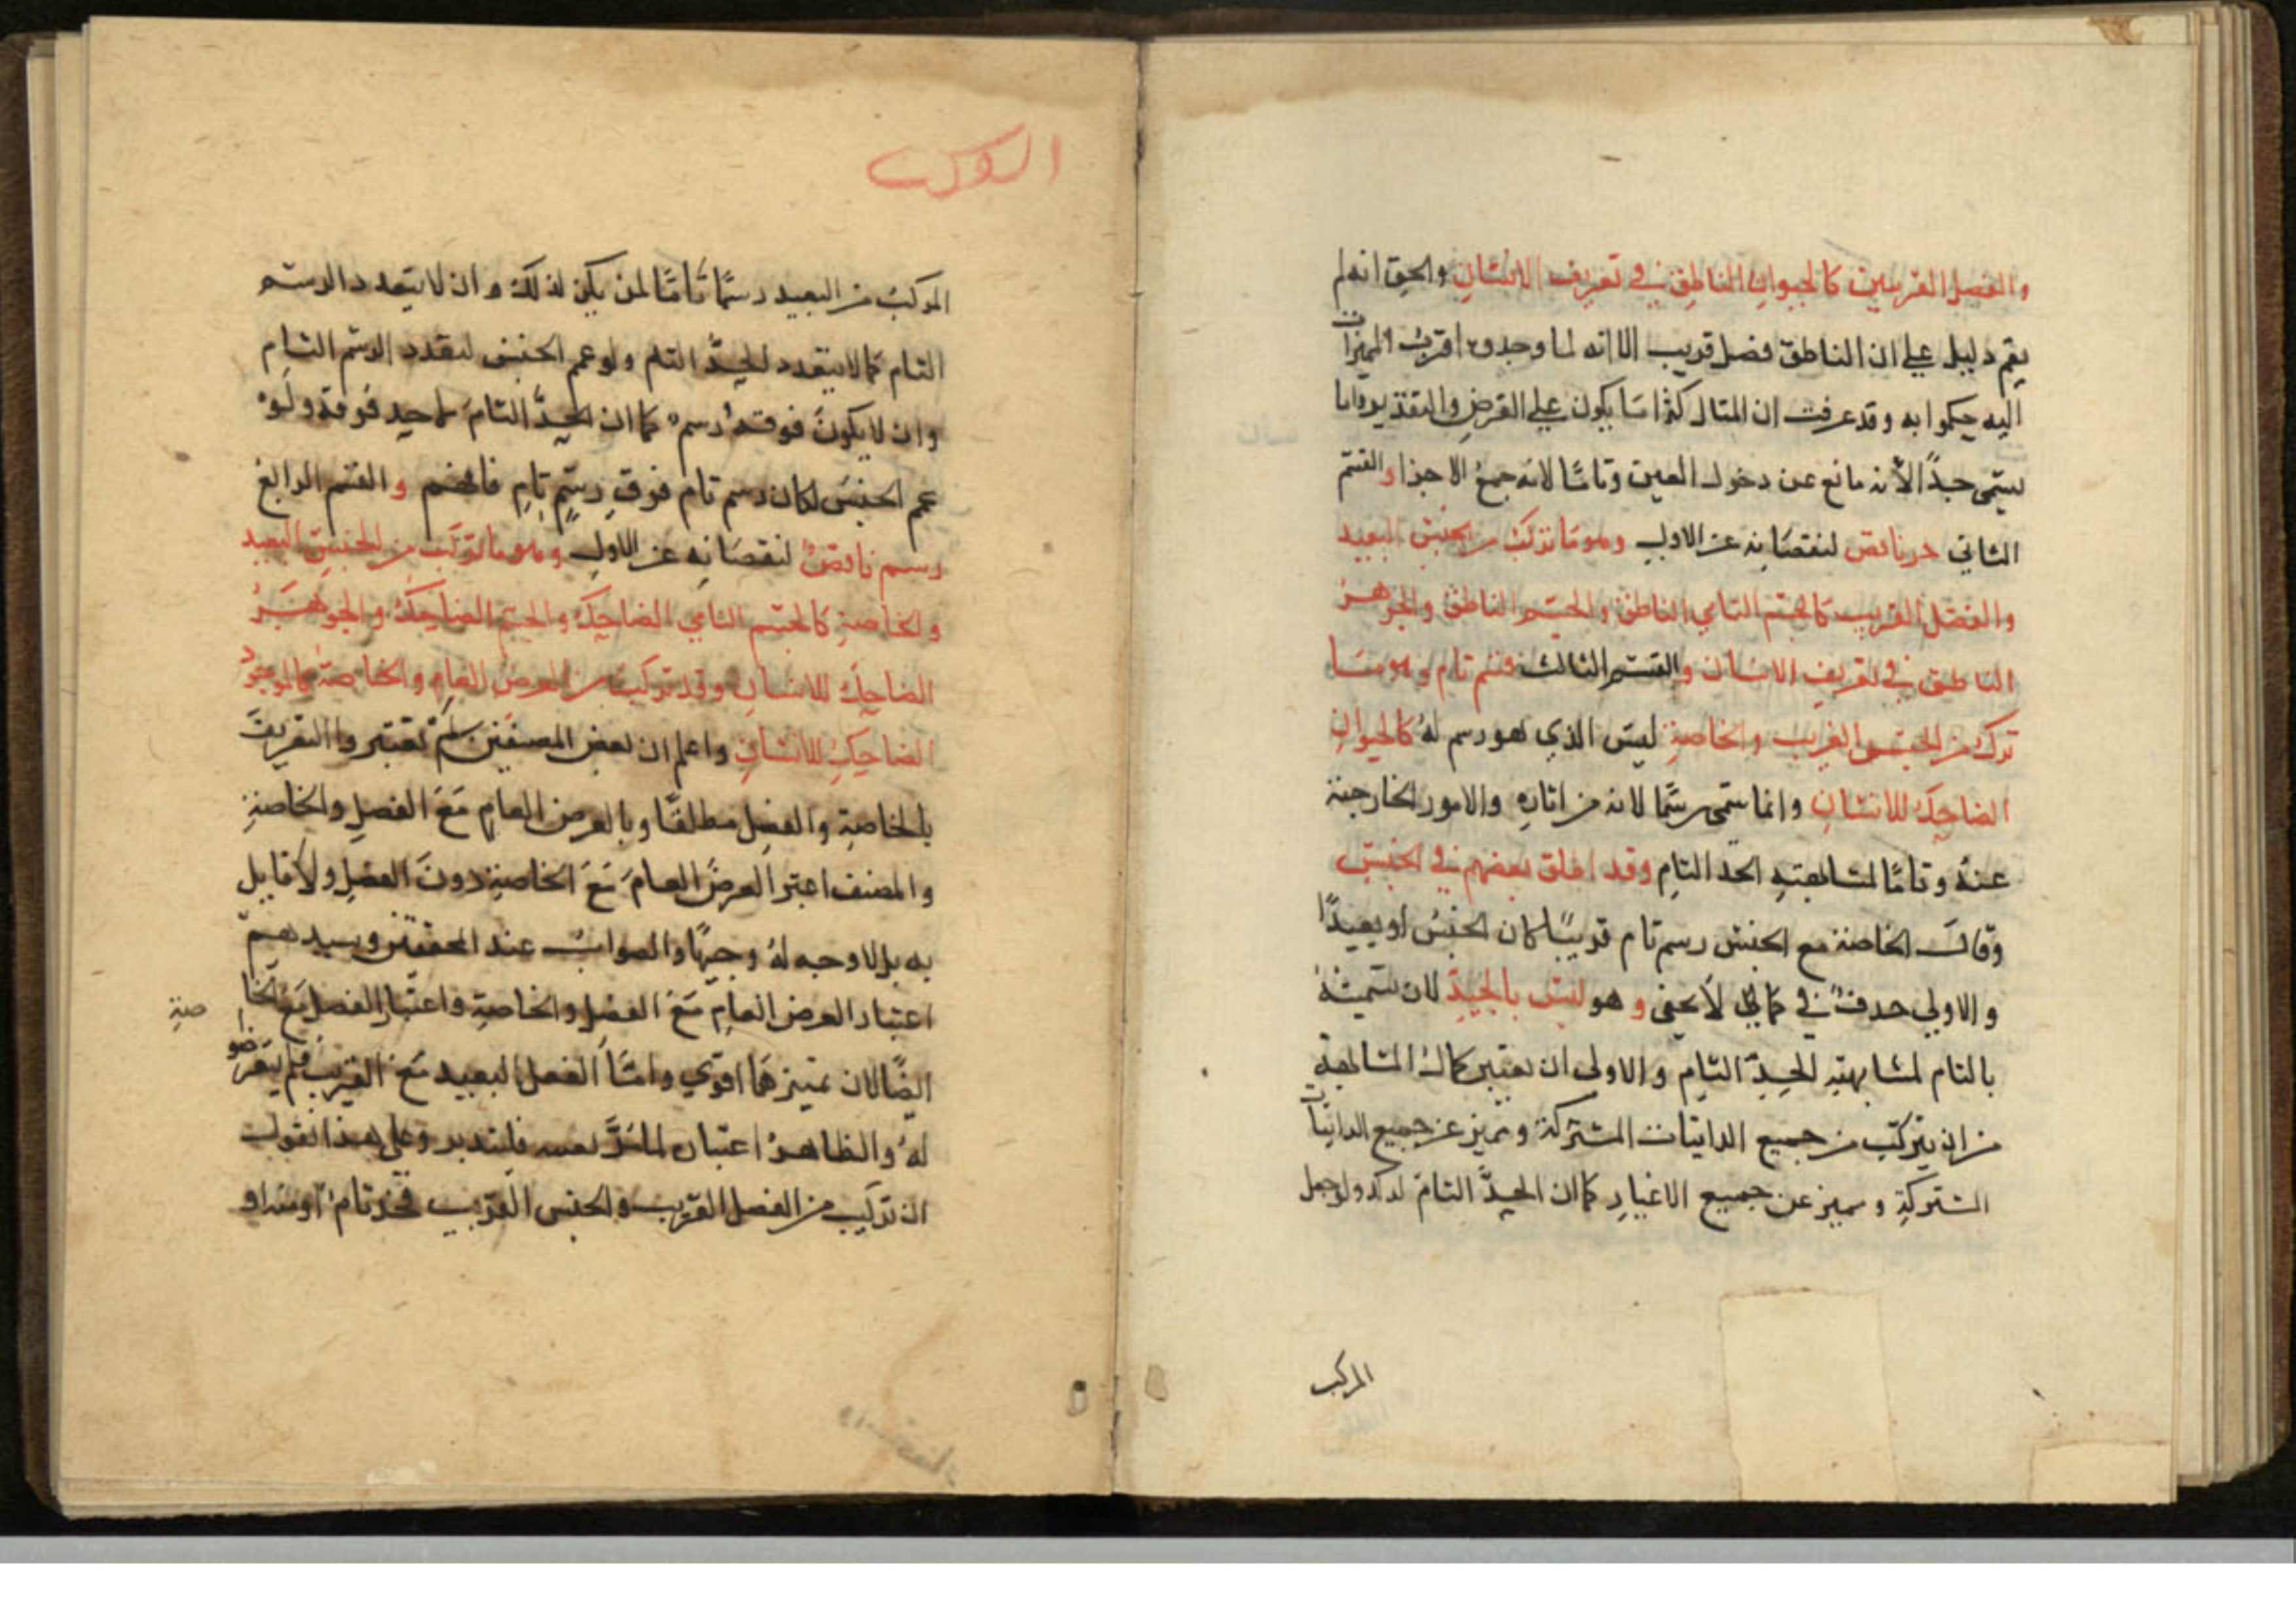 والفصل القريبين كالحيوان الناطق في تعريف الانسان والحق انه لم
يقم دليل على ان الناطق فصل قريب الا انه لما وجدوه اقرب المميزات
اليه حكموا به وقد عرفت ان المثال كثيرا ما يكون على الفرض والتقدير واما
يسمى حدا لأنه مانع عن دخول الغير وتامًا لانه جمع الاجزا والقسم
الثاني حد ناقص لنقصانه عن الاول وهو ما تركب من الجنس البعيد
والفصل القريب كالجسم النامي الناطق والجسم الناطق والجوهر
الناطق في تعريف الانسان والقسم الثالث رسم تام وهو ما
تركب من الجنس القريب والخاصة ليس الذي هو رسم له كالحيوان
الضاحك للانسان وانما سمي رسما لانه من اثاره والامور الخارجة
عنه وتامًا لمشابهته الحد التام وقد اطلق بعضهم في الجنس
وقال الخاصة مع الجنس رسم تام قريبًا كان الجنس او بعيدًا
والاولى حذف في كما لا يخفى و هو ليس بالجيد لان تسميته
بالتام لمشابهته للحد التام والاولى ان يعتبر كمال المشابهة
من ان يتركب من جميع الذاتيات المشتركة ومميز عن جميع الذاتيات
المشتركة ومميز عن جميع الاغيار كما ان الحد التام لذلك ولو جعل
المركب
المركب من البعيد رسمًا تامًا لمن يكن لذلك وان لا يتعدد الرسم
التام كما لا يتعدد الحد التام ولو عمم الجنس لتعدد الرسم التام
وان لا يكون فوقه رسم كما ان الحد التام لا حد فوقه ولو
عمم الجنس لكان رسم تام فوق رسم تام فافهم و القسم الرابع
رسم ناقص لنقصانه عن الاول وهو ما تركب من الجنس البعيد
والخاصة كالجسم النامي الضاحك والجسم الضاحك والجوهر
الضاحك للانسان وقد تركب من العرض العام والخاصة كالموجود
الضاحك للانسان واعلم ان بعض المصنفين لم تعتبروا التعريف
بالخاصة والفصل مطلقًا وبالعرض العام مع الفصل والخاصة
والمصنف اعتبر العرض العام مع الخاصة دون الفصل ولا قايل
به بل لا وجه له وجيهًا والصواب عند المحققين وسيدهم
اعتبار العرض العام مع الفصل والخاصة واعتبار الفصل مع الخا
صة
ايضًا لان تميزهما اقوى واما الفصل البعيد مع القريب فلم يتعرضو
له والظاهر اعتباره لما مر بعينه فليتدبر وعلى هذا نقول
ان تركب من الفصل القريب والجنس القريب فحد تام او منه او